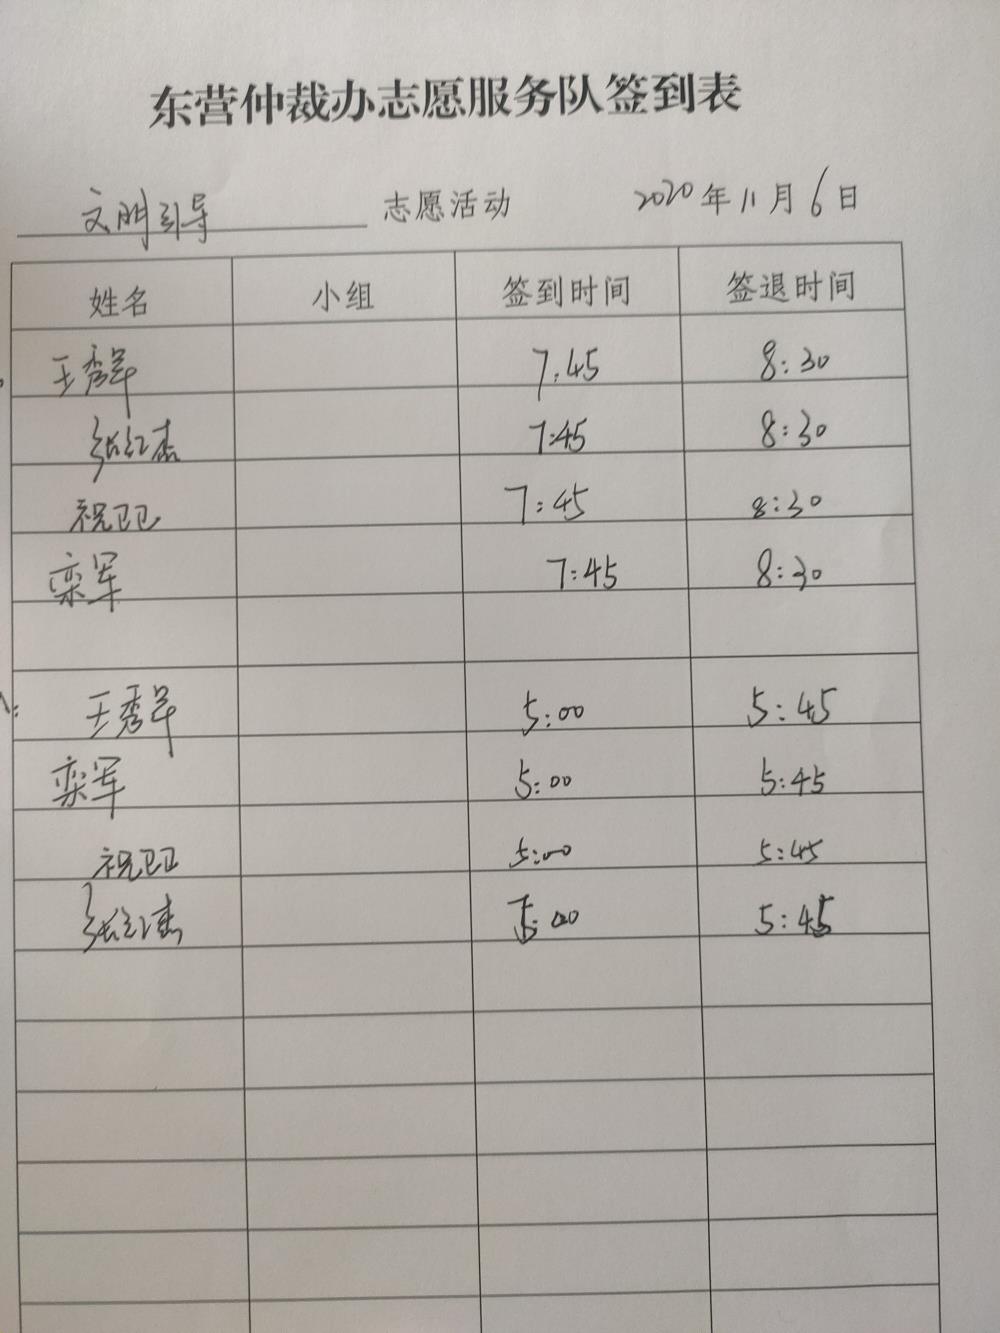 东营仲裁办志愿服务队签到表
文明引导 志愿活动 2020年11月6日
姓名 小组 签到时间 签退时间
王秀军 7:45 8:30
张红杰 7:45 8:30
祝卫卫 7:45 8:30
栾军 7:45 8:30
王秀军 5:00 5:45
栾军 5:00 5:45
祝卫卫 5:00 5:45
张红杰 5:00 5:45